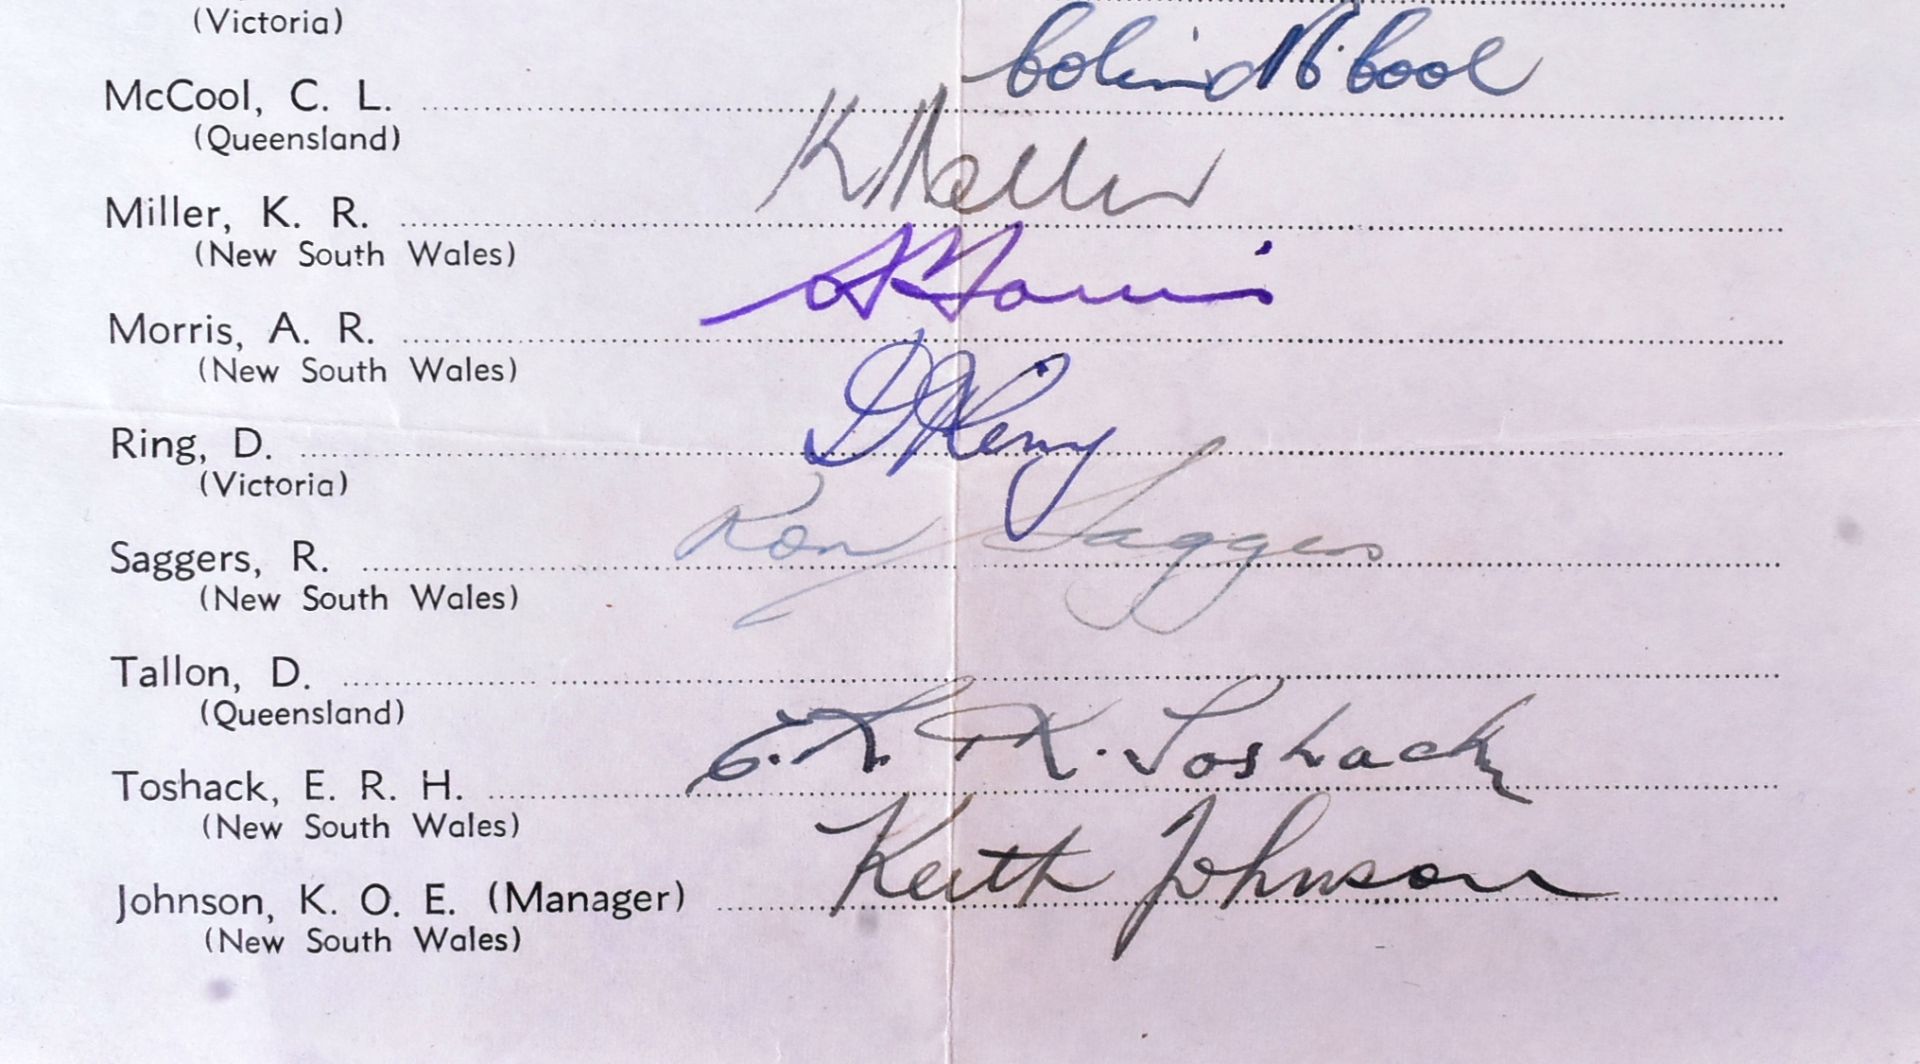 (Victoria)
McCool, C. L. Colin McCool
(Queensland)
Miller, K. R. K Miller
(New South Wales)
Morris, A. R. A Morris
(New South Wales)
Ring, D. D Ring
(Victoria)
Saggers, R. Ron Saggers
(New South Wales)
Tallon, D.
(Queensland)
Toshack, E. R. H. E. R. H. Toshack
(New South Wales)
Johnson, K. O. E. (Manager) Keith Johnson
(New South Wales)